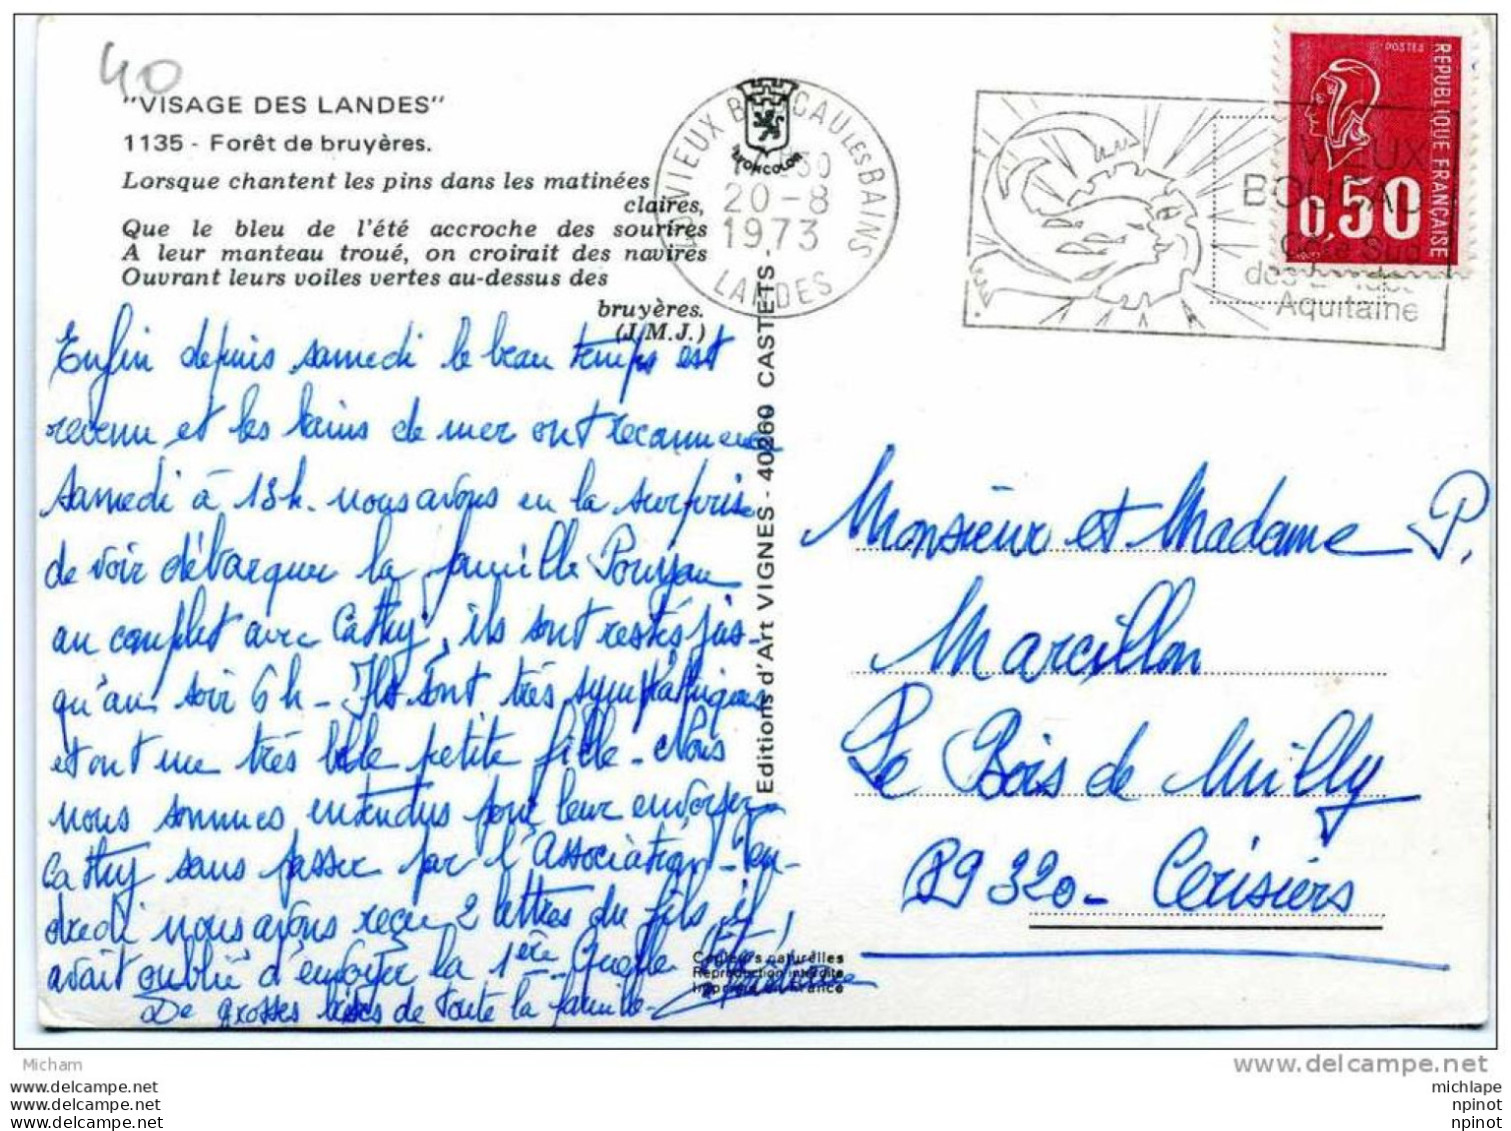 40
"VISAGE DES LANDES"
1135 - Forêt de bruyères.
Lorsque chantent les pins dans les matinées
claires,
Que le bleu de l'été accroche des sourires
A leur manteau troué, on croirait des navires
Ouvrant leurs voiles vertes au-dessus des
bruyères.
(J.M.J.)
Enfin depuis samedi le beau temps est
revenu et les bains de mer ont recommencé
Samedi à 13h. nous avons eu la surprise
de voir débarquer la famille Poujau
au complet avec Cathy, ils sont restés jus-
qu'au soir 6h - Ils sont très sympathiques
et ont une très belle petite fille - Nous
nous sommes entendus pour leur envoyer
Cathy sans passer par l'Association - Ven-
dredi nous avons reçu 2 lettres du fils, il
avait oublié d'envoyer la 1ère. Quelle tête!
De grosses bises de toute la famille -
Editions d'Art VIGNES - 40260 CASTETS -
LYONCOLOR
40 VIEUX BOUCAU LES BAINS
30
20-8
1973
LANDES
VIEUX
BOUCAU
Côte Sud
des Landes
Aquitaine
POSTES
REPUBLIQUE FRANÇAISE
0,50
Monsieur et Madame P.
Marcillon
Le Bois de Milly
89320 - Cerisiers
Couleurs naturelles
Reproduction interdite
Imprimé en France
Micham
www.delcampe.net
www.delcampe.net
www.delcampe.net
delcampe.net
michlape
npinot
npinot